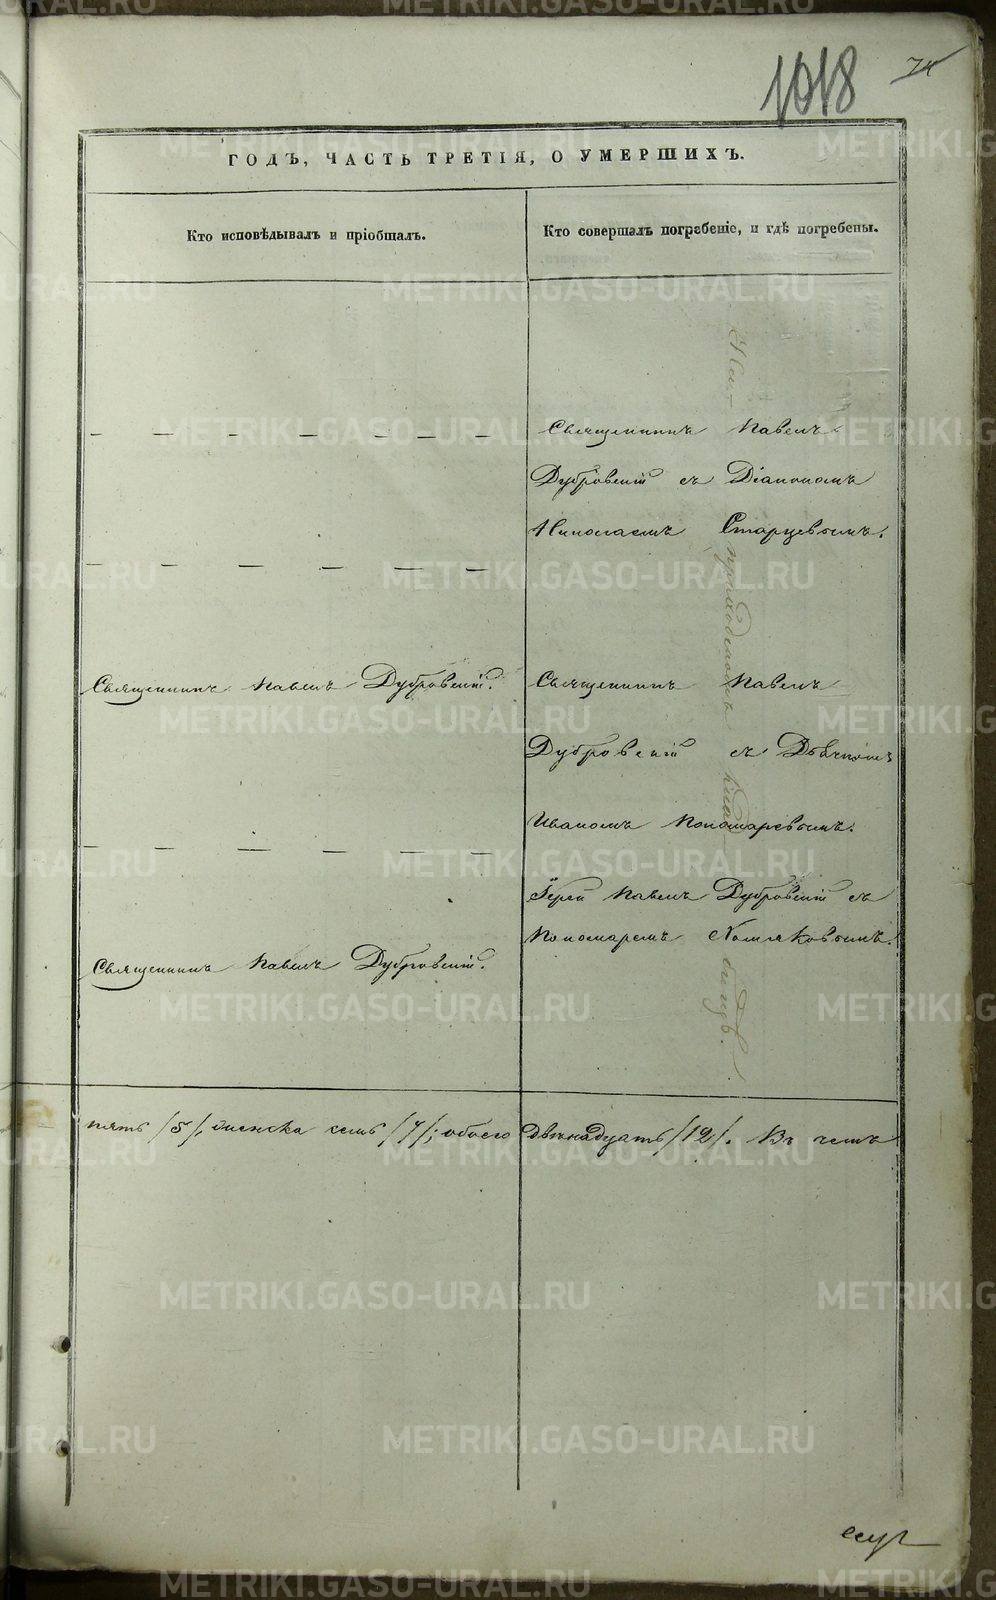 1018
74
ГОДЪ, ЧАСТЬ ТРЕТІЯ, О УМЕРШИХЪ.
Кто исповѣдывалъ и пріобщалъ.
Кто совершалъ погребеніе, и гдѣ погребены.
Священникъ Павелъ
Дубровскій съ Діакономъ
Николаемъ Старцевымъ.
Священникъ Павелъ Дубровскій.
Священникъ Павелъ
Дубровскій съ Дьячкомъ
Иваномъ Пономаревымъ.
Іерей Павелъ Дубровскій съ
Пономаремъ Хомяковымъ.
Священникъ Павелъ Дубровскій.
На приходскомъ кладбищѣ.
пять /5/, женска семь /7/; обоего двѣнадцать /12/. Въ чемъ
METRIKI.GASO-URAL.RU